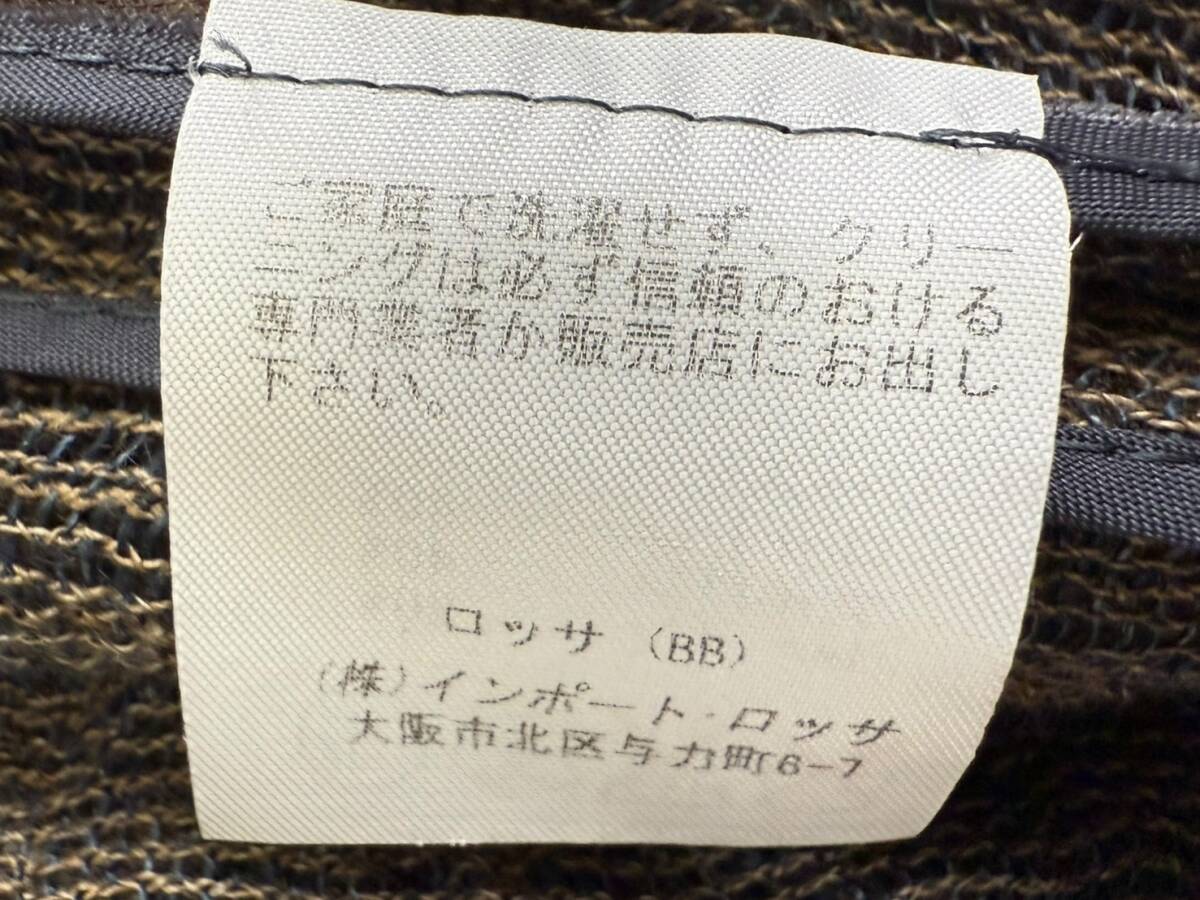 ご家庭で洗濯せず、クリー
ニングは必ず信頼のおける
専門業者か販売店にお出し
下さい。
ロッサ (BB)
(株)インポート・ロッサ
大阪市北区与力町6-7